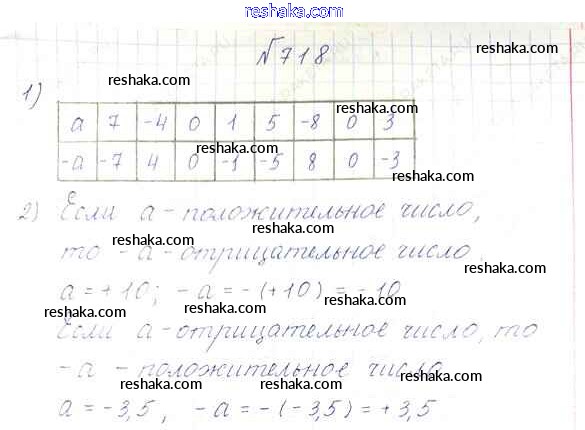 reshaka.com
№718
reshaka.com
reshaka.com
1)
reshaka.com
reshaka.com
a 7 -4 0 1 5 -8 0 3
-a -7 4 0 -1 -5 8 0 -3
reshaka.com
reshaka.com
2) Если a - положительное число,
reshaka.com
то -a - отрицательное число.
reshaka.com
reshaka.com
a = +10; -a = -(+10) = -10
reshaka.com
reshaka.com
Если a - отрицательное число, то
reshaka.com
-a - положительное число
reshaka.com
reshaka.com
a = -3,5, -a = -(-3,5) = +3,5
reshaka.com